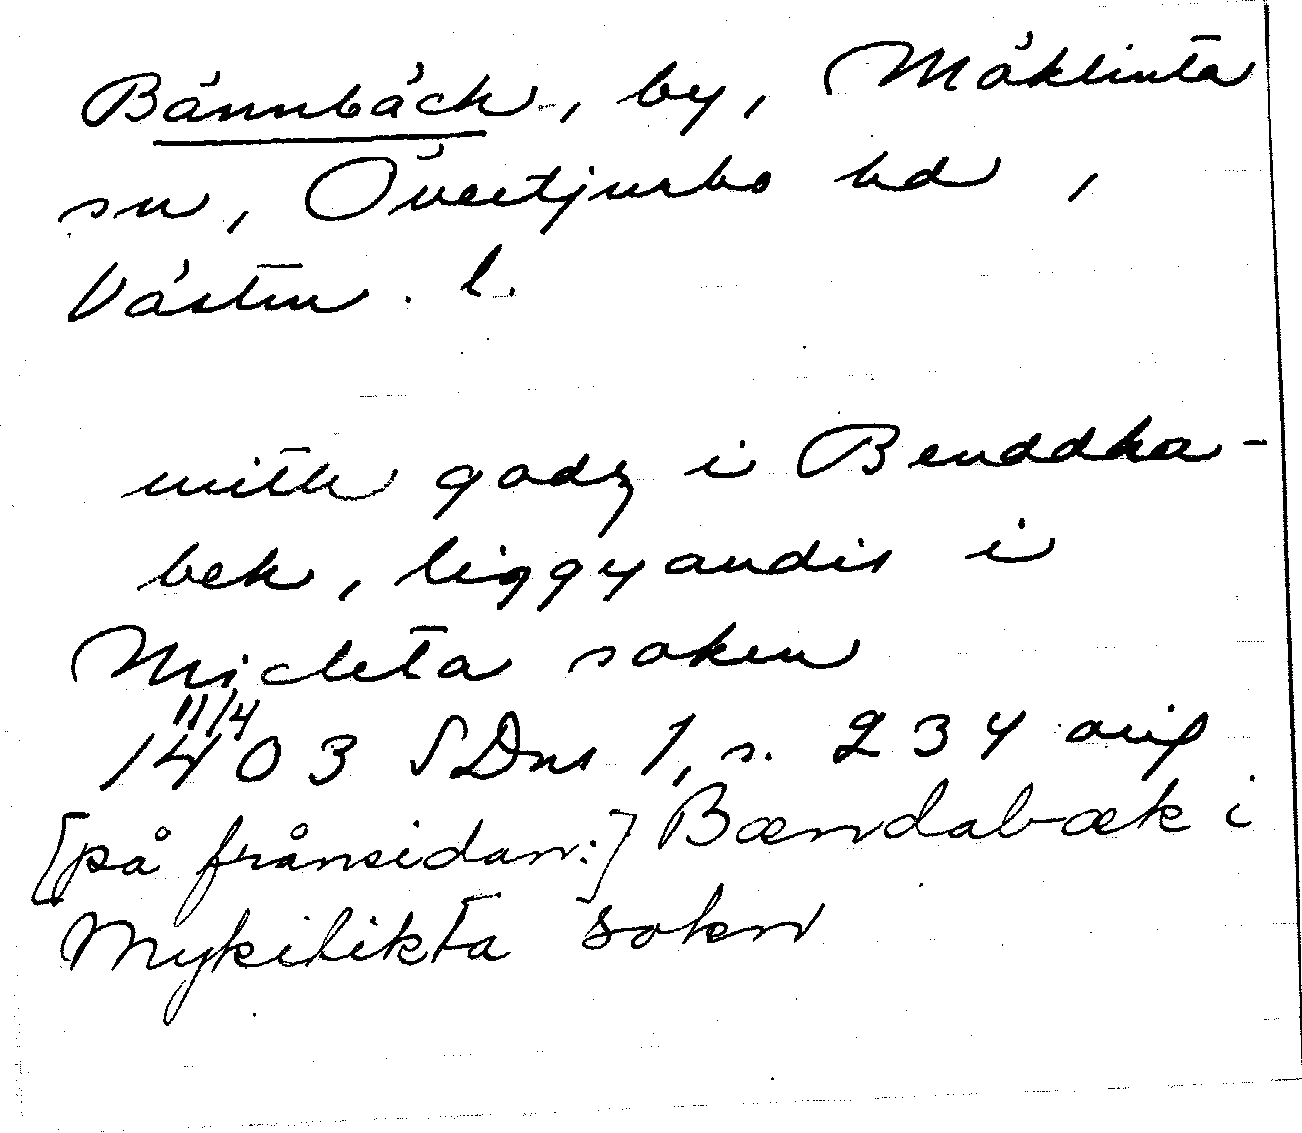 Bännbäck, by, Möklinta
sn, Övertjurbo hd,
Västm. l.
mith godz i Benddha-
bek, liggyandis i
Micleta soken
11/4
1403 SDns 1, s. 234 orig
[på frånsidan:] Bændabæk i
Mykilikta sokn